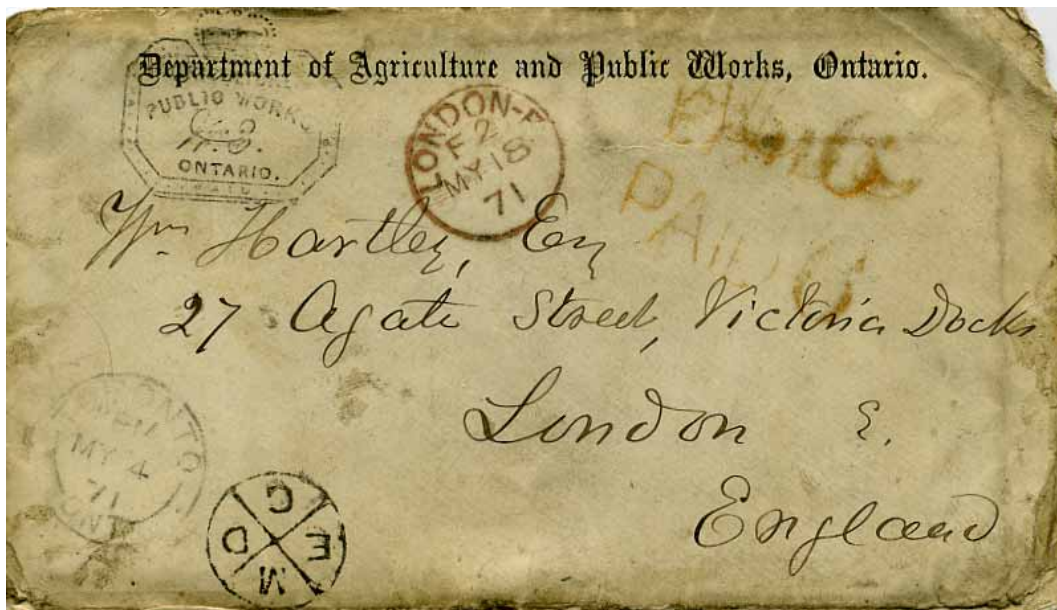 Department of Agriculture and Public Works, Ontario.
PUBLIC WORKS
ONTARIO.
LONDON-E
F2
MY 18
71
PAID
Wm Hartley, Esq
27 Agate Street, Victoria Docks
London E.
England
TORONTO
MY 4
71
ONT
G
D E
M